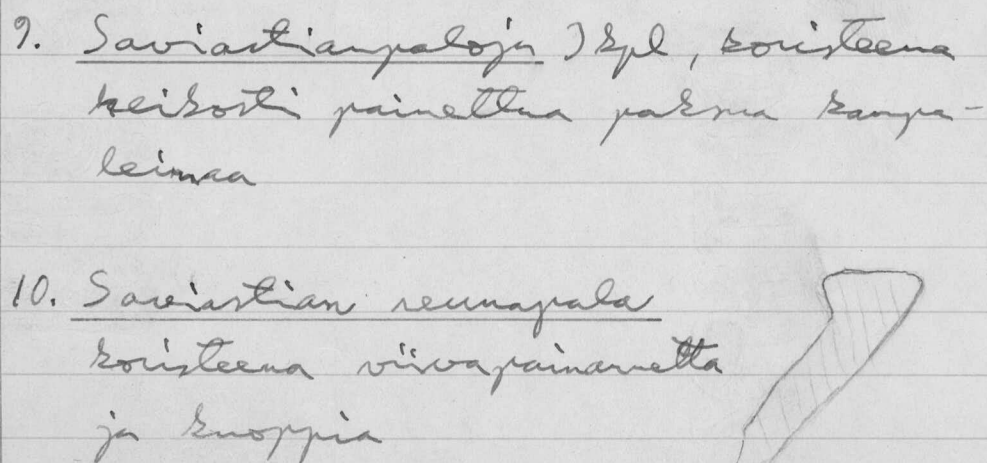 9. Saviastianpaloja 3 kpl, koristeena
heikosti painettua paksua kampa-
leimaa
10. Saviastian reunapala
koristeena viivapainannetta
ja kuoppia